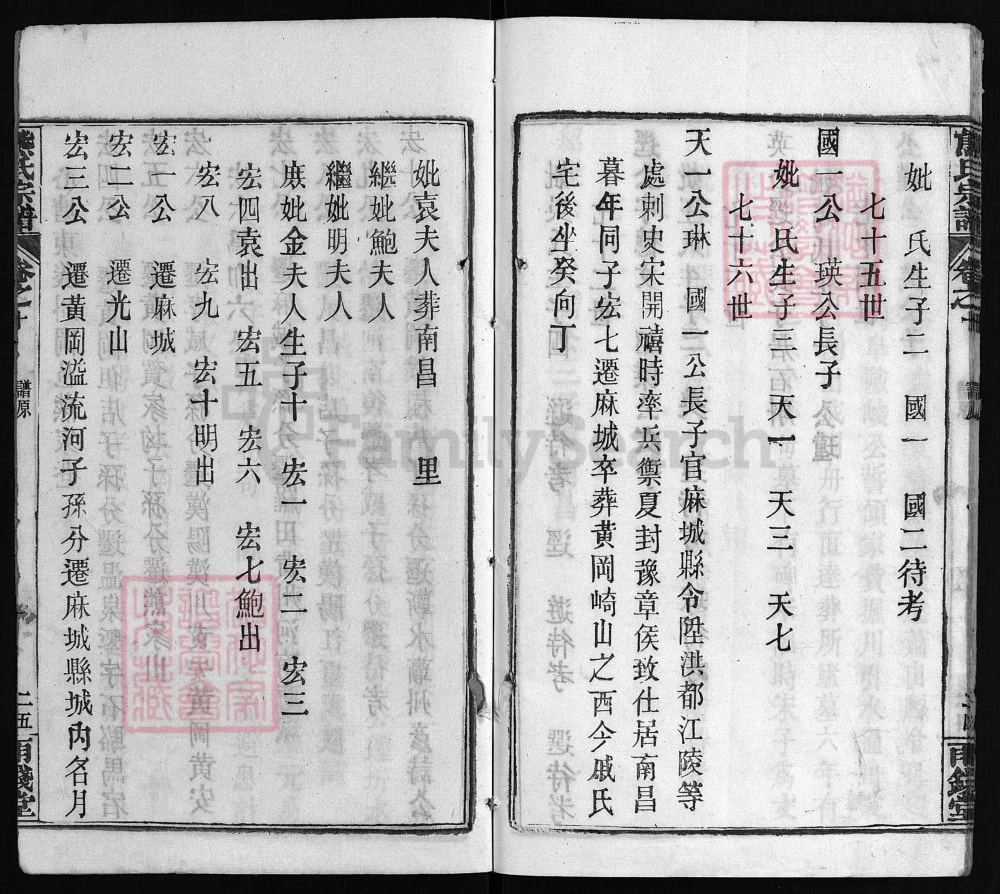 妣 氏生子二 國一 國二待考
七十五世
國一公 瑛公長子
妣 氏生子三 天一 天三 天七
七十六世
天一公琳 國一公長子官麻城縣令陞洪都江陵等
處刺史宋開禧時率兵禦夏封豫章侯致仕居南昌
暮年同子宏七遷麻城卒葬黃岡崎山之西今戚氏
宅後坐癸向丁
妣袁夫人葬南昌 里
繼妣鮑夫人
繼妣明夫人
庶妣金夫人生子十 宏一 宏二 宏三
宏四袁出 宏五 宏六 宏七鮑出
宏八 宏九 宏十明出
宏一公 遷麻城
宏二公 遷光山
宏三公 遷黃岡溢流河子孫分遷麻城縣城內名月
熊氏宗譜 卷之十 譜原 二五
FamilySearch